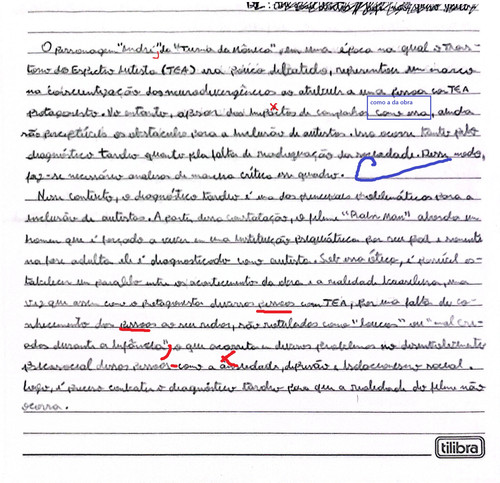 O personagem "André", da "Turma da Mônica", em uma época na qual o Trans-
torno do Espectro Autista (TEA) era pouco debatido, representou um marco
na conscientização das neurodivergências ao atribuir a uma pessoa com TEA
protagonista. No entanto, apesar dos impactos de campanhas como essa, ainda
como a da obra
são perceptíveis os obstáculos para a inclusão de autistas. Isso ocorre tanto pelo
diagnóstico tardio quanto pela falta de readequação da sociedade. Desse modo,
faz-se necessário analisar de maneira crítica esse quadro.
Nesse contexto, o diagnóstico tardio é um dos principais problemáticas para a
inclusão de autistas. A partir dessa constatação, o filme "Rain Man" aborda um
homem que é forçado a viver em uma instituição psiquiátrica por seu pai e somente
na fase adulta ele é diagnosticado como autista. Sob essa ótica, é possível es-
tabelecer um paralelo entre os acontecimentos da obra e a realidade brasileira, uma
vez que assim como o protagonista diversas pessoas com TEA, por uma falta de co-
nhecimento das pessoas ao seu redor, são rotulados como "loucos" ou "mal cri-
ados durante a infância", o que acarreta em diversos problemas no desenvolvimento
psicossocial dessas pessoas como a ansiedade, depressão e isolacionismo social.
Logo, é preciso combater o diagnóstico tardio para que a realidade do filme não
ocorra.
tilibra